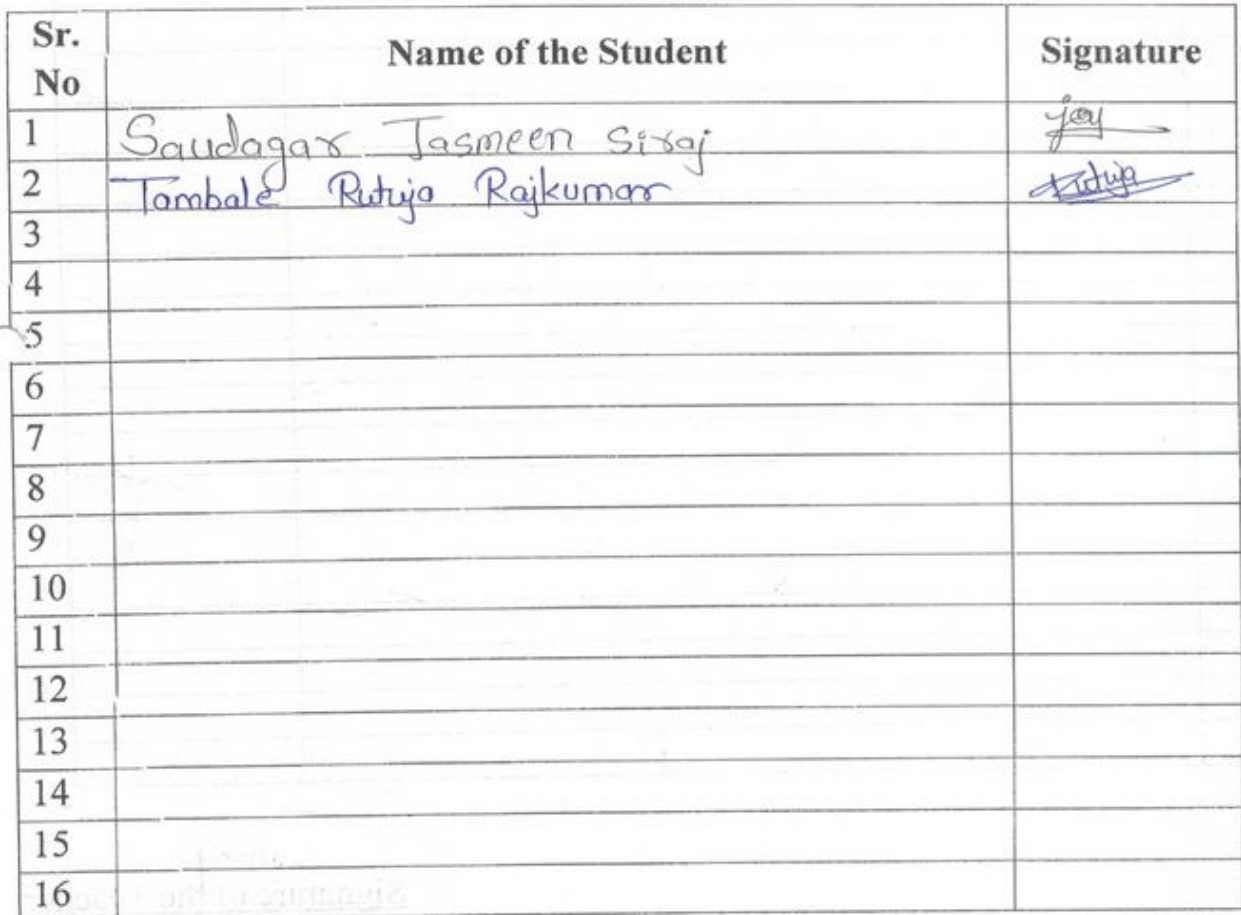 Sr. No Name of the Student Signature
1 Saudagar Jasmeen Siraj
2 Tambale Rutuja Rajkumar Rutuja
3
4
5
6
7
8
9
10
11
12
13
14
15
16